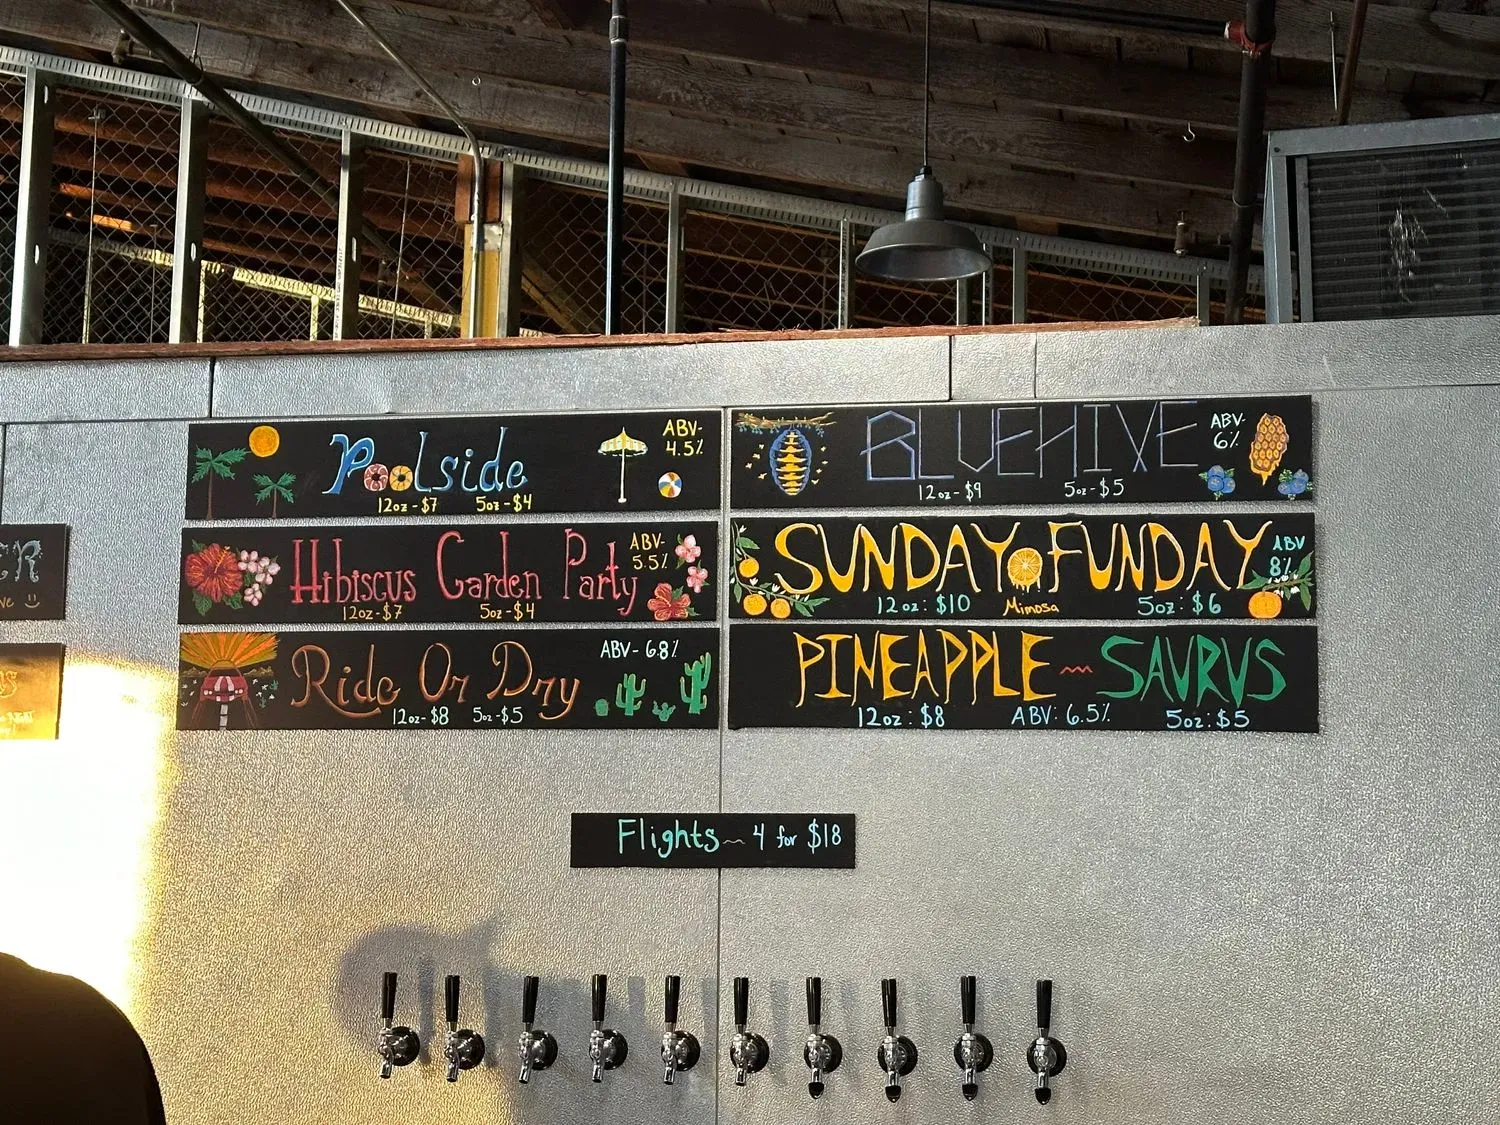 Poolside
ABV-
4.5%
12oz-$7 5oz-$4
BLUEHIVE
ABV-
6%
12oz-$9 5oz-$5
Hibiscus Garden Party
ABV-
5.5%
12oz-$7 5oz-$4
SUNDAY FUNDAY
ABV
8%
12oz: $10 Mimosa 5oz: $6
Ride Or Dry
ABV- 6.8%
12oz-$8 5oz-$5
PINEAPPLE~SAURUS
12oz: $8 ABV: 6.5% 5oz: $5
Flights~ 4 for $18